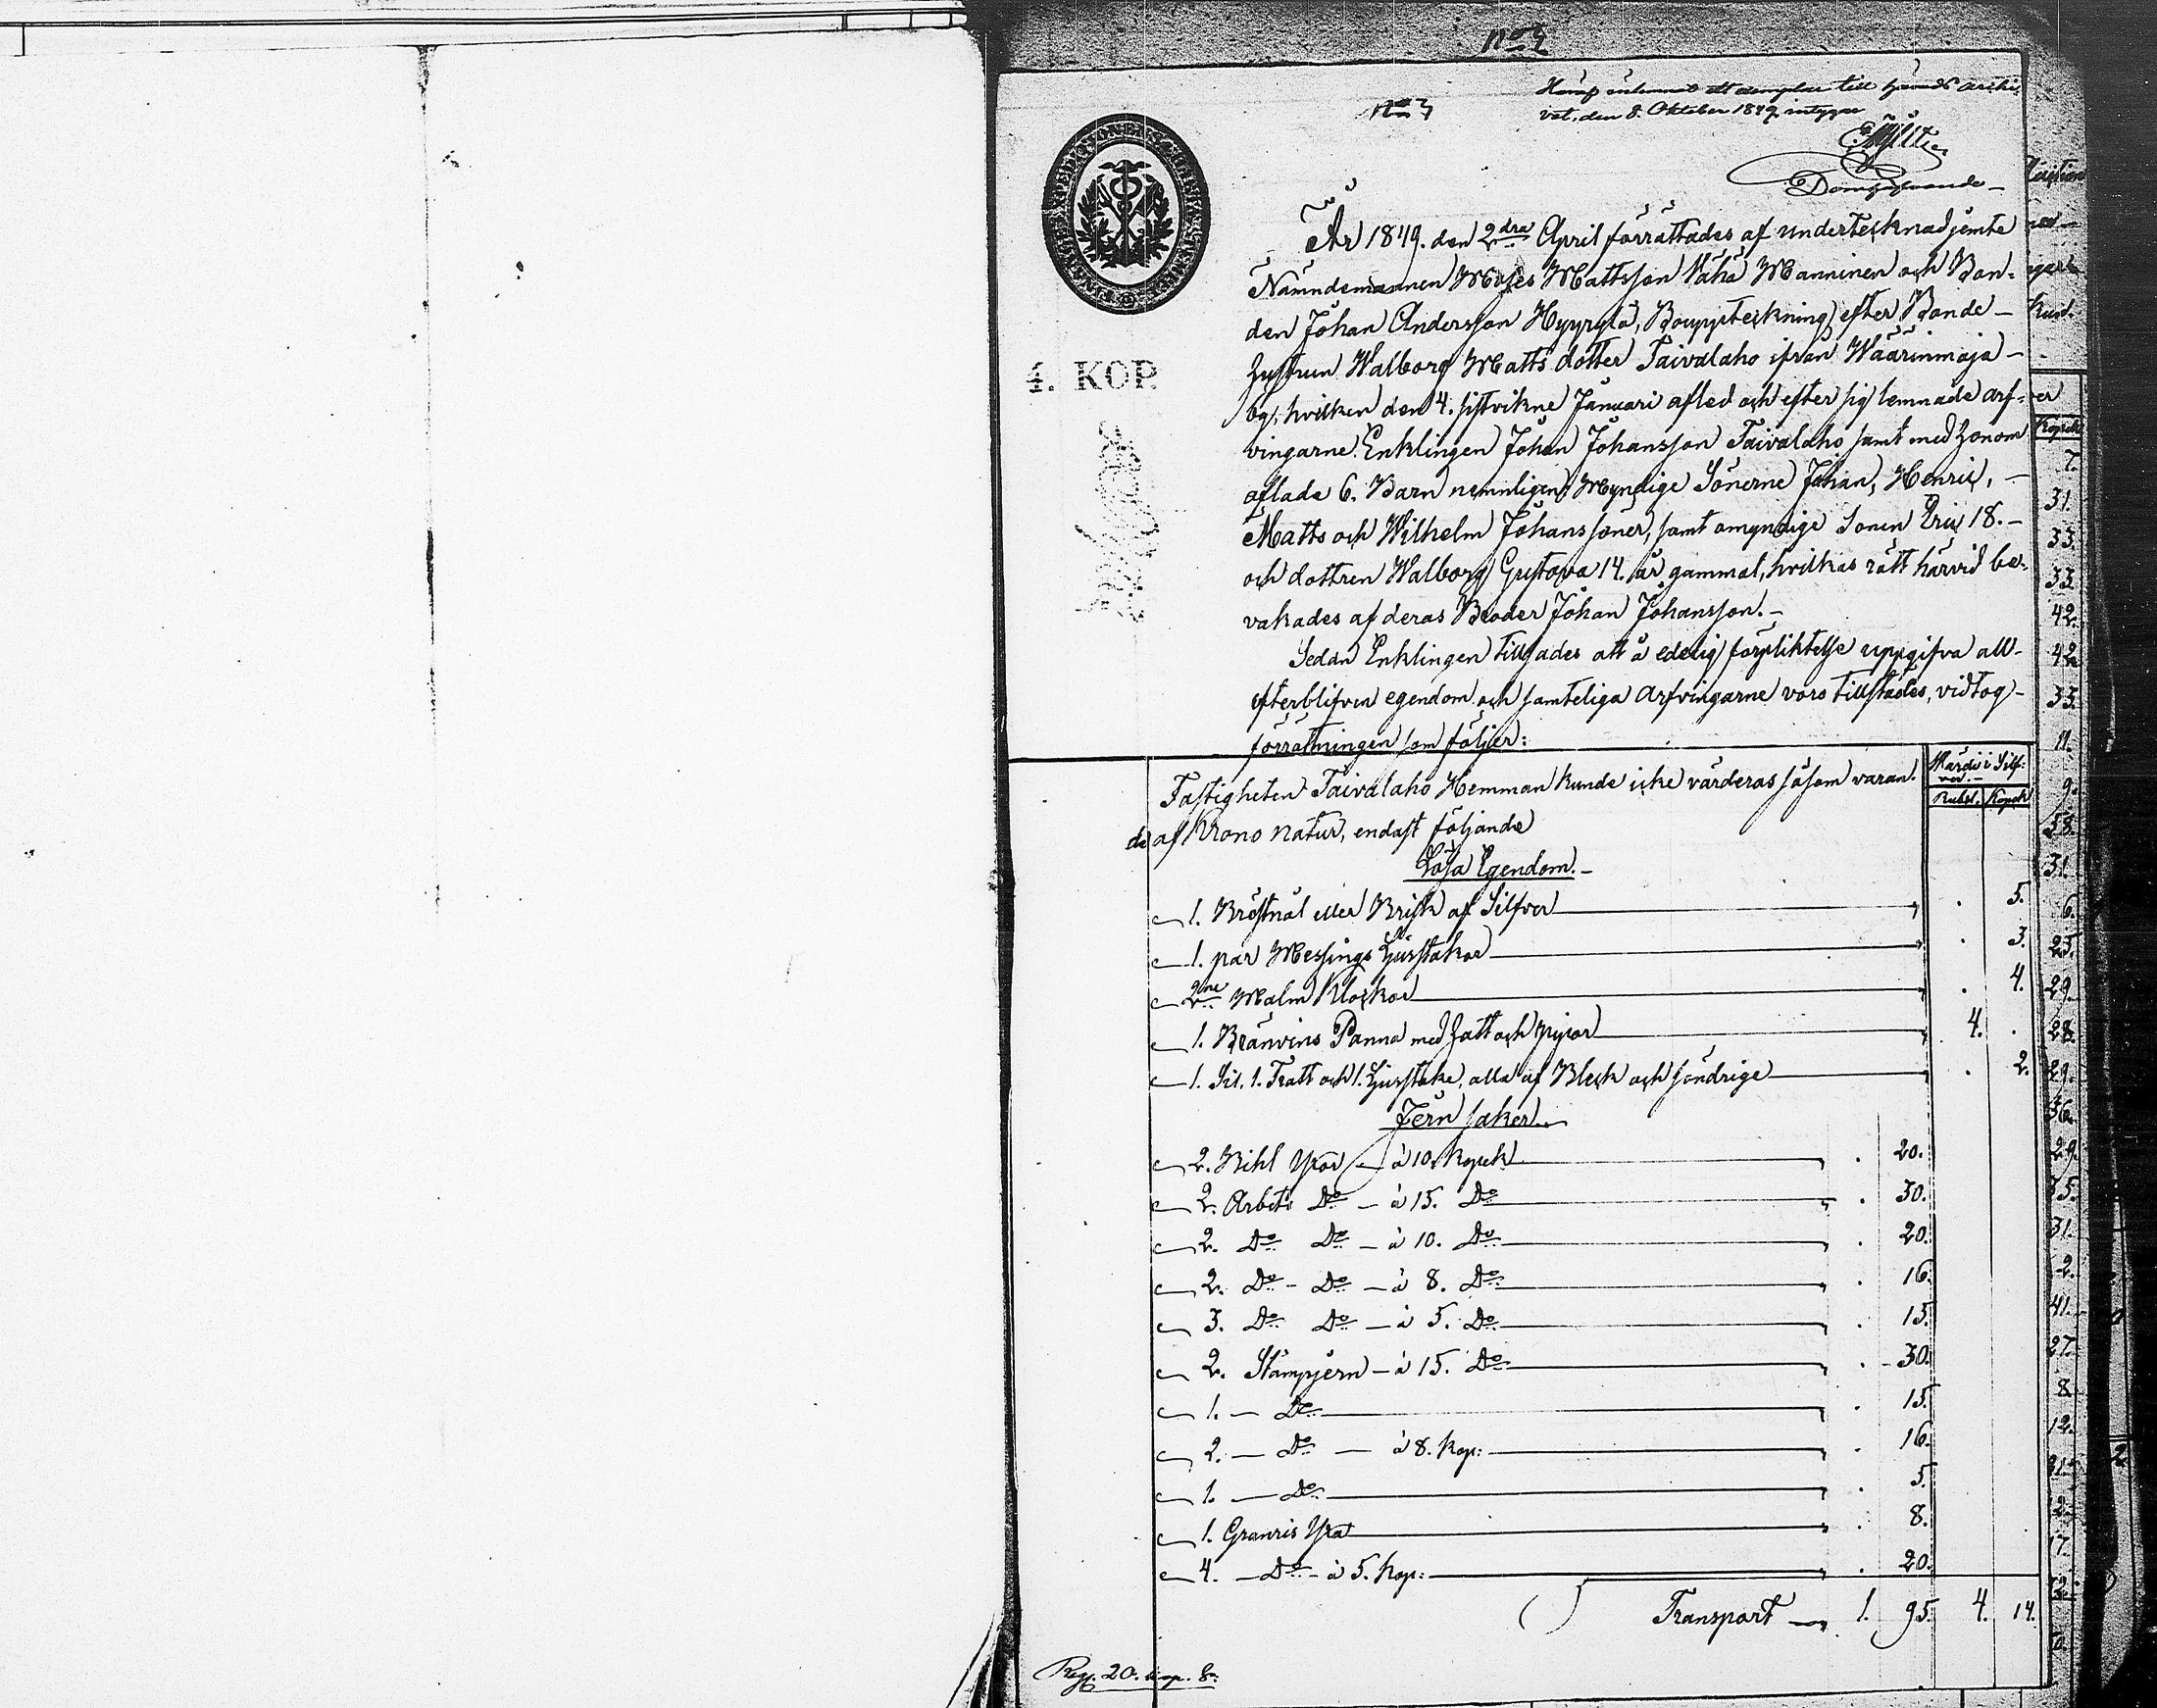 No 7
No 7
Häraf inlemnat ett exemplar till härads arki-
vet, den 8. Oktober 1849, intygar
Domhafvande
4. KOP.
År 1849. den 2dra April förrättades af undertecknad jemte
Nämndemannen Moses Mattsson Vähä Manninen och Bon-
den Johan Andersson Hyyrylä, Bouppteckning efter Bonde-
hustrun Walborg Mattsdotter Taivalaho ifrån Wäärinmaja
by, hvilken den 4. sistvikne Januari afled och efter sig lemnade arf-
vingarne Enklingen Johan Johansson Taivalaho samt med honom
aflade 6. Barn nemnligen: Myndige Sönerne Johan, Henric,
Matts och Wilhelm Johanssöner, samt omyndige Sonen Eric 18.
och dottren Walborg Gustava 14. år gammal, hvilkas rätt härvid be-
vakades af deras Broder Johan Johansson.
Sedan Enklingen tillsades att å edelig förpliktelse uppgifva all
efterblifven egendom och samteliga arfvingarne voro tillstädes, vidtog
förrättningen som följer:
Värde i Silf-
ver.
Rubel. Kopek
Fastigheten Taivalaho Hemman kunde icke värderas såsom varan-
de af Krono natur, endast följande
Lösa Egendom.
1. Bröstnål eller Brisk af Silfver . 5.
1. par Messings Ljusstakar . 3.
2ne Malm Klockor . 4.
1. Bränvins Panna med hatt och pipor 4. .
1. Sil, 1. Tratt och 1. Ljusstake, alla af Bleck och söndrige . 2.
Jern saker.
2. Bihl Yxor à 10. Kopek . 20.
2. Arbets Do à 15. Do . 30.
2. Do Do à 10. Do . 20.
2. Do Do à 8. Do . 16.
3. Do Do à 5. Do . 15.
2. Stämpjern à 15. Do . 30.
1. Do . 15.
2. Do à 8. Kop: . 16.
1. Do . 5.
1. Granris Yxa . 8.
4. Do à 5. Kop: . 20.
Transport 1. 95. 4. 14.
Kopek
7.
31.
33.
33.
42.
42.
33.
11.
9.
58.
31.
6.
25.
29.
28.
29.
36.
29.
35.
31.
2.
41.
27.
8.
12.
31.
2.
17.
2.